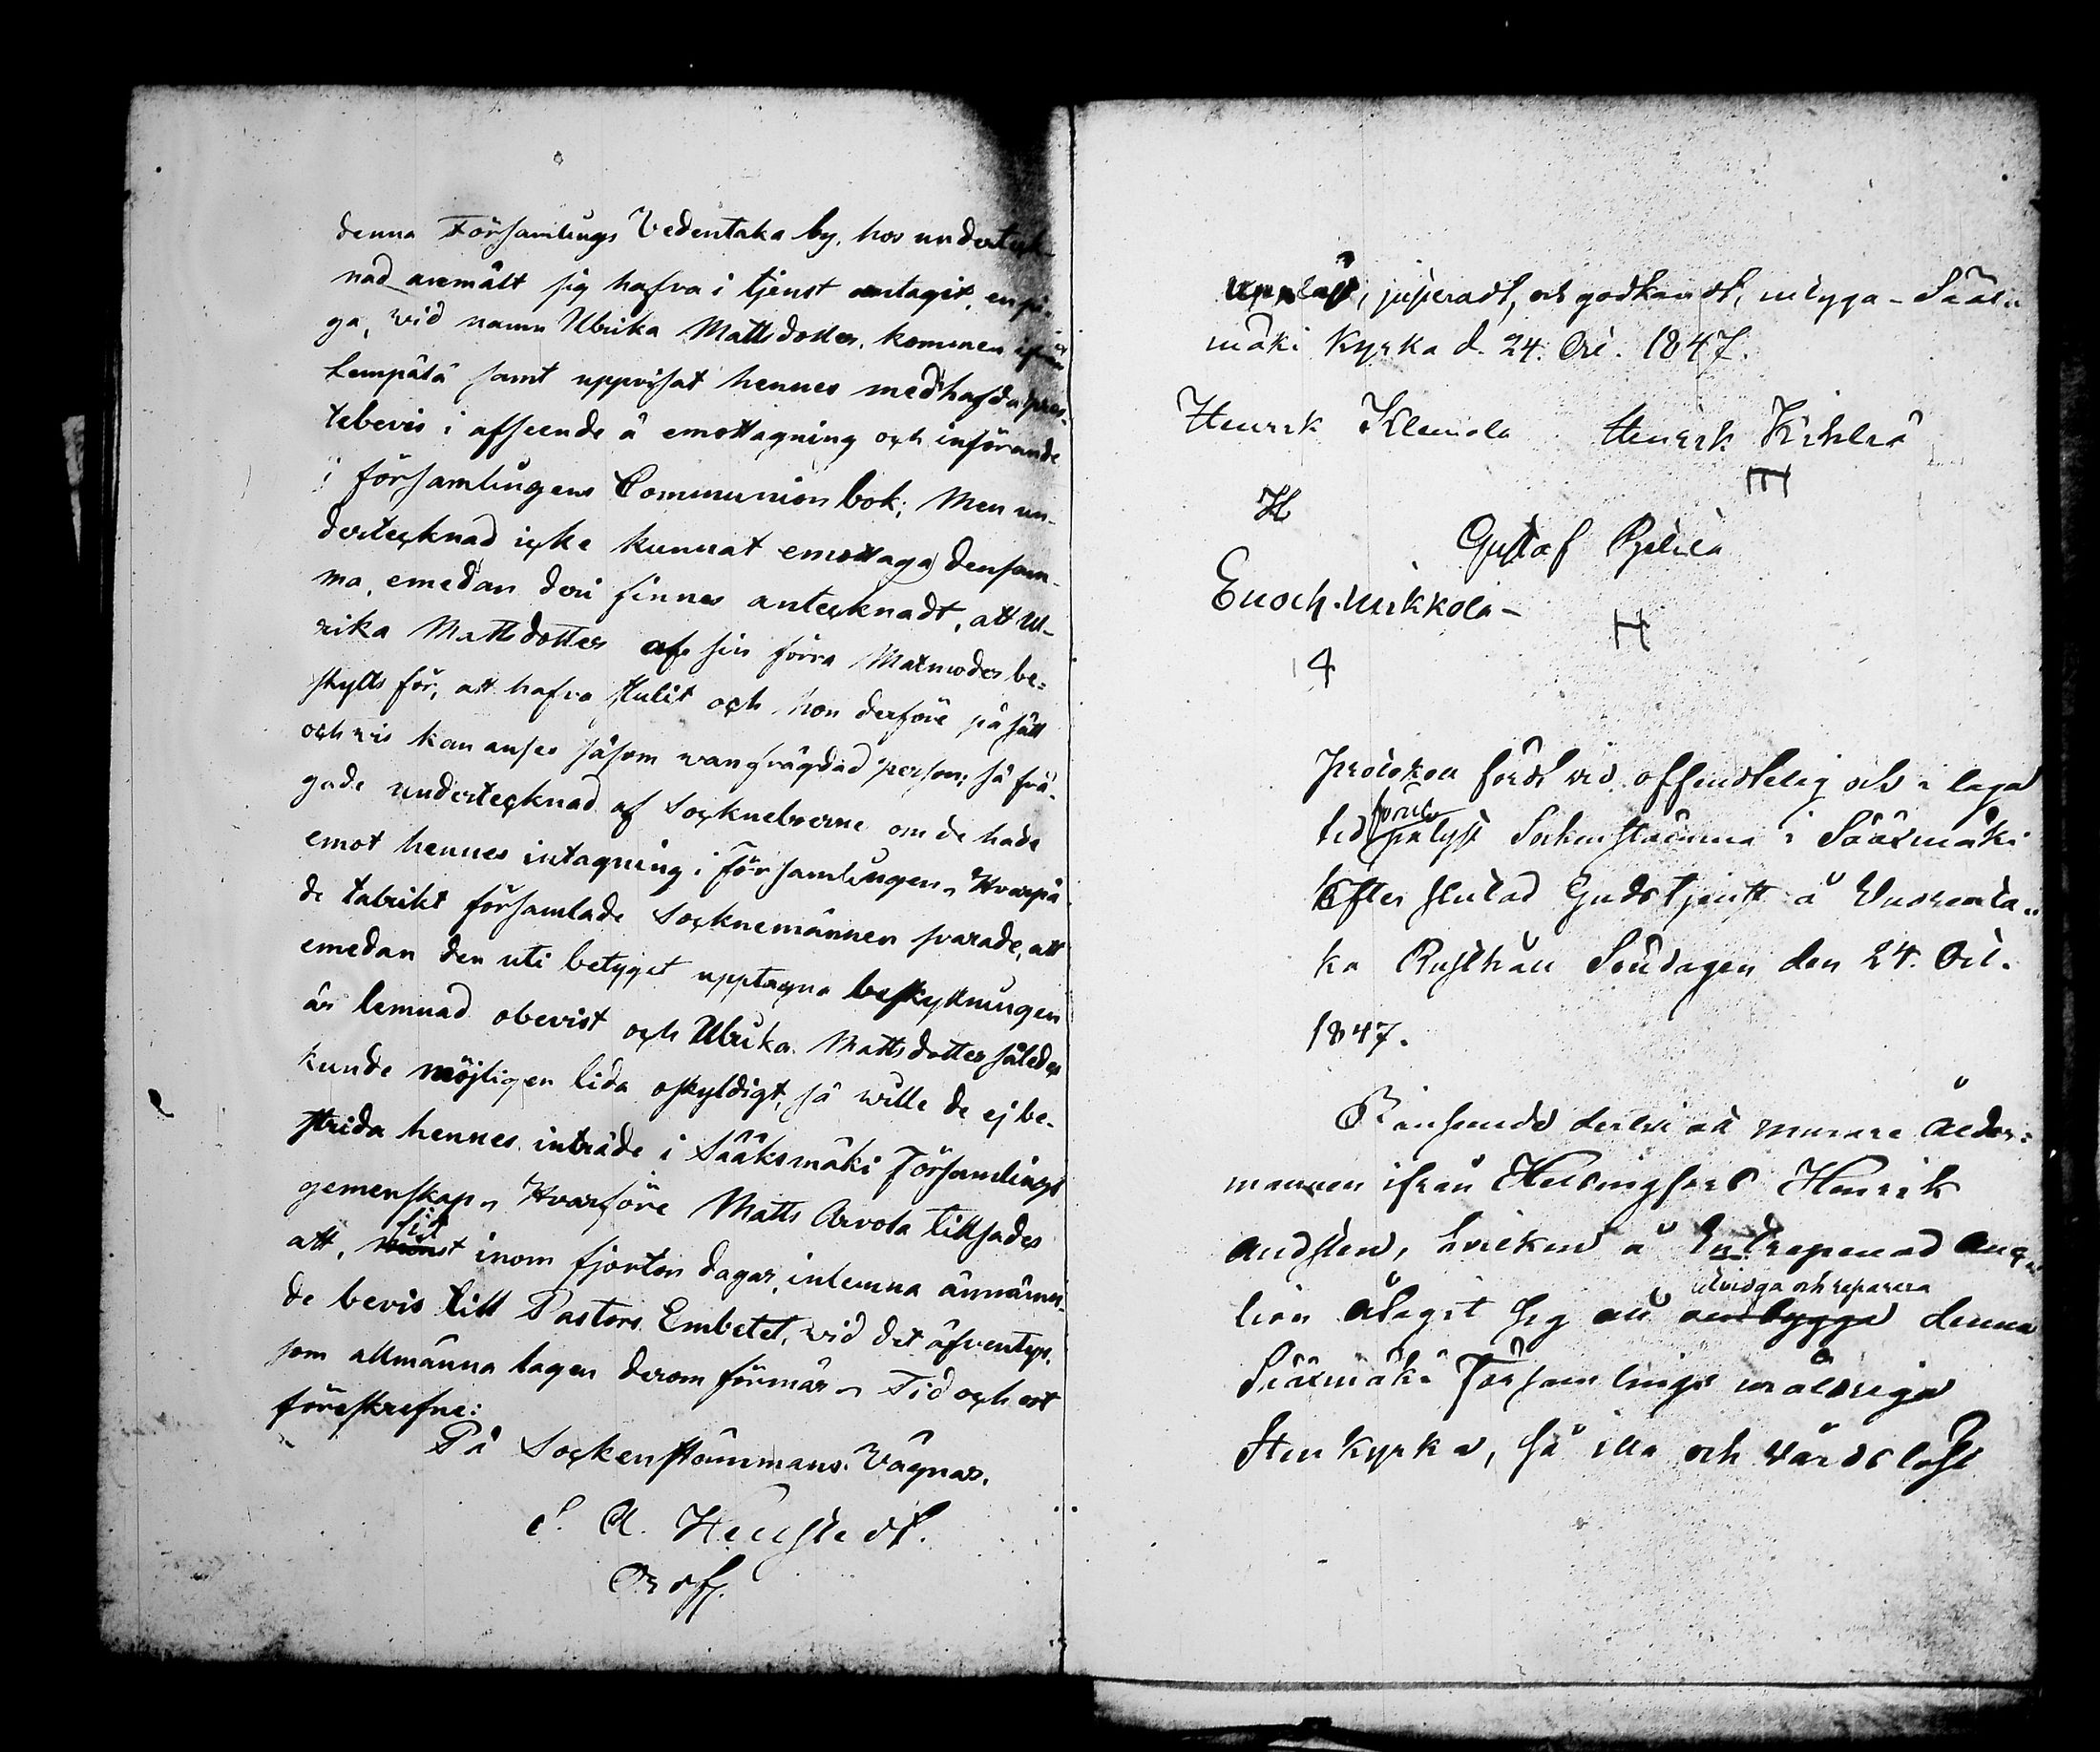 denna Församlings Vedentaka by, hos underteck-
nad anmält sig hafva i tjenst antagit, en pi-
ga, wid namn Ulrika Mattsdotter, kommen ifrån
Lempälä samt uppvisat hennes medhafda pres-
tebevis i afseende å emottagning och införande
i församlingens Communion bok; Men un-
dertecknad icke kunnat emottaga densam-
ma, emedan deri finnes antecknadt, att Ul-
rika Mattsdotter af sin förra Matmoder be-
skylts för, att hafva stulit och hon derföre på sätt
och vis kan anses såsom vanfrägdad person; så frå-
gade undertecknad af Sockneboerne om de hade
emot hennes intagning i Församlingen, Hvarpå
de talrikt församlade Socknemännen svarade, att
emedan den uti betyget upptagna beskyllningen
är lemnad obevist och Ulrika Mattsdotter således
kunde möjligen lida oskyldigt, så wille de ej be-
strida hennes inträde i Sääksmäki Församlings
gemenskap, Hvarföre Matts Arvola tillsades
att, sist inom fjorton dagar, inlemna ännämn-
de bevis till Pastors Embetet, wid det äfventyr,
som allmänna lagen derom förmår, Tid och ort
föreskrefne:
På Sockenstämmans Vägnar.
Ordf.
Upläst, justeradt, och godkändt, intyga - Sääx-
mäki Kyrka d. 24. Oct. 1847.
Henrik Klemola Henrik Kihlrä
H
Gustaf
Enoch Uirkkola -
H
4
Protokoll fördt vid offentelig och i laga
tid förut pålyst Sockenstämma i Sääxmäki
Efter slutad Gudstjenst å Vuorenta-
ka Rusthåll Söndagen den 24. Oct.
1847.
I anseende dertill att murare Ålder-
mannen ifrån Helsingfors Henrik
Andsten, hvilken å Entreprenad Auc-
tion åtagit sig att ombygga utvidga och reparera denna
Sääxmäki Församlings uråldriga
Sten kyrka, så illa och vårdslöst